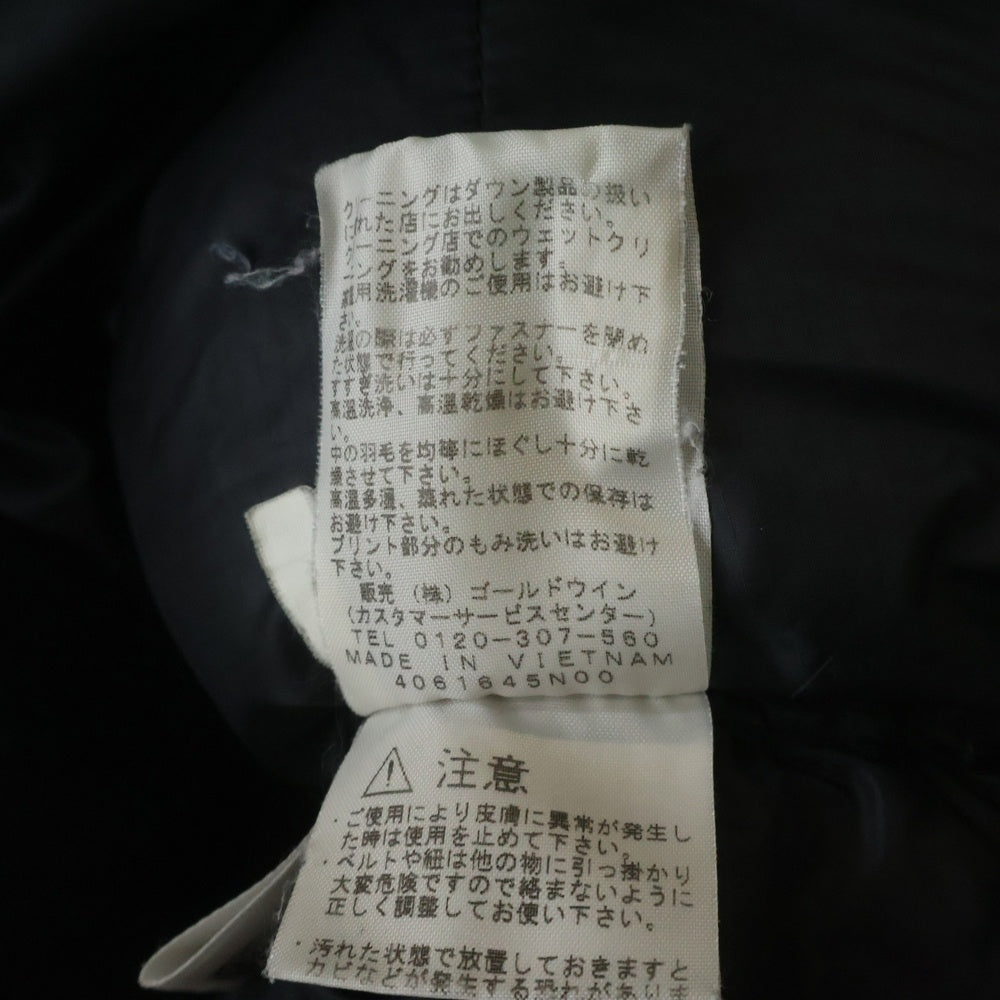 クリーニングはダウン製品の扱い
に慣れた店にお出しください。
クリーニング店でのウェットクリ
ーニングをお勧めします。
家庭用洗濯機のご使用はお避け下
さい。
洗濯の際は必ずファスナーを閉め
た状態で行ってください。
すすぎ洗いは十分にして下さい。
高温洗浄、高温乾燥はお避け下さ
い。
中の羽毛を均等にほぐし十分に乾
燥させて下さい。
高温多湿、蒸れた状態での保存は
お避け下さい。
プリント部分のもみ洗いはお避け
下さい。
販売 (株) ゴールドウイン
(カスタマーサービスセンター)
TEL 0120-307-560
MADE IN VIETNAM
4061645N00
注意
・ご使用により皮膚に異常が発生し
た時は使用を止めて下さい。
・ベルトや紐は他の物に引っ掛かり
大変危険ですので絡まないように
正しく調整してお使い下さい。
・汚れた状態で放置しておきますと
カビなどが発生する恐れがありま